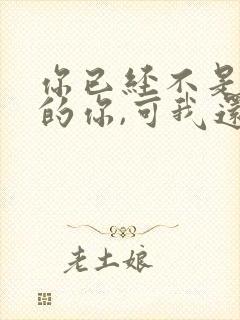 你已经不是
的你,可我還
老土娘